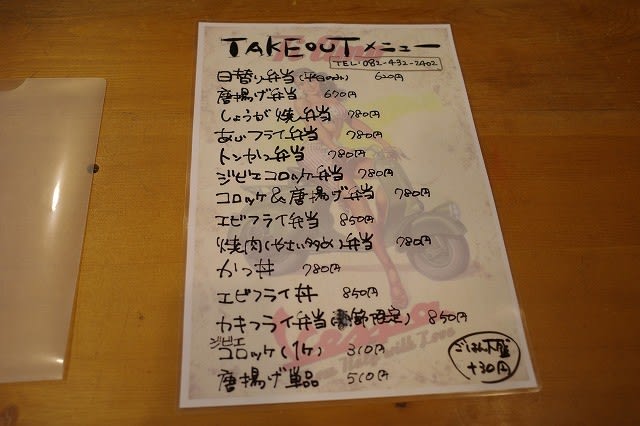 TAKEOUTメニュー
TEL:082-432-2402
日替り弁当(平日のみ) 620円
唐揚げ弁当 670円
しょうが焼弁当 780円
あじフライ弁当 780円
トンかつ弁当 780円
ジビエコロッケ弁当 780円
コロッケ&唐揚げ弁当 780円
エビフライ弁当 850円
焼肉(やさい炒め)弁当 780円
かつ丼 780円
エビフライ丼 850円
カキフライ弁当(季節限定) 850円
ジビエ
コロッケ(1ヶ) 310円
唐揚げ単品 510円
ごはん大盛
+30円